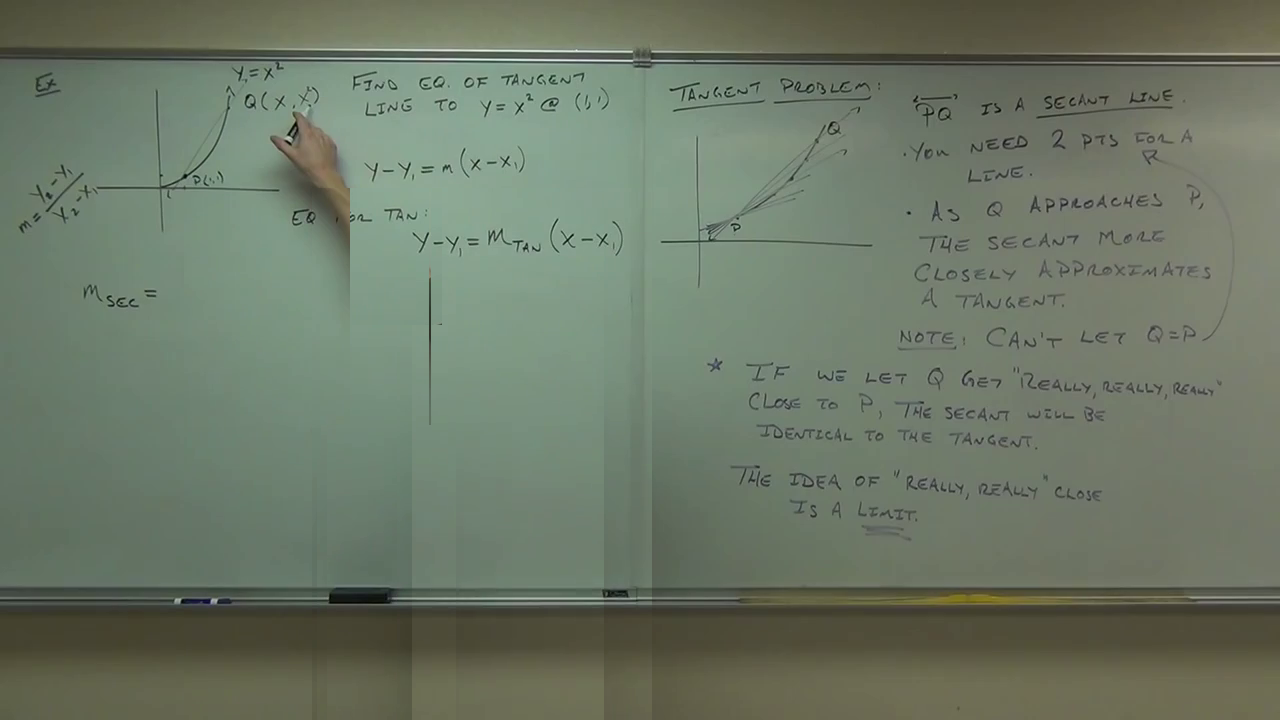 Ex
y=x²
Q(x, x²)
P(1,1)
m = y₂-y₁/x₂-x₁
FIND EQ. OF TANGENT
LINE TO y=x² @ (1,1)
y-y₁=m(x-x₁)
EQ FOR TAN:
y-y₁=m_TAN(x-x₁)
m_SEC=
TANGENT PROBLEM:
Q
P
"PQ" IS A SECANT LINE.
·YOU NEED 2 PTS FOR A
LINE.
· AS Q APPROACHES P,
THE SECANT MORE
CLOSELY APPROXIMATES
A TANGENT.
NOTE: CAN'T LET Q=P
* IF WE LET Q GET "REALLY, REALLY, REALLY"
CLOSE TO P, THE SECANT WILL BE
IDENTICAL TO THE TANGENT.
THE IDEA OF "REALLY, REALLY" CLOSE
IS A LIMIT.